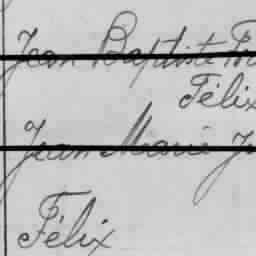 Jean Baptiste
Félix
Jean Marie
Félix